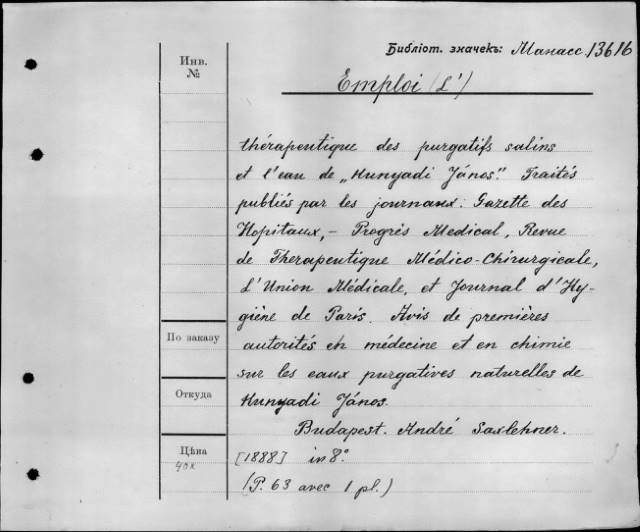 Библіот. значекъ: Манасс. 13616
Инв.
№
Emploi (L')
thérapeutique des purgatifs salins
et l'eau de „Hunyadi János". Traités
publiés par les journaux: Gazette des
Hopitaux, - Progrès Medical, Revue
de Therapeutique Médico-Chirurgicale,
L'Union Médicale, et Journal d'Hy-
giène de Paris. Avis de premières
autorités en médecine et en chimie
sur les eaux purgatives naturelles de
Hunyadi János.
Budapest. André Saxlehner.
[1888] in 8°.
(P. 63 avec 1 pl.)
По заказу
Откуда
Цѣна
40к